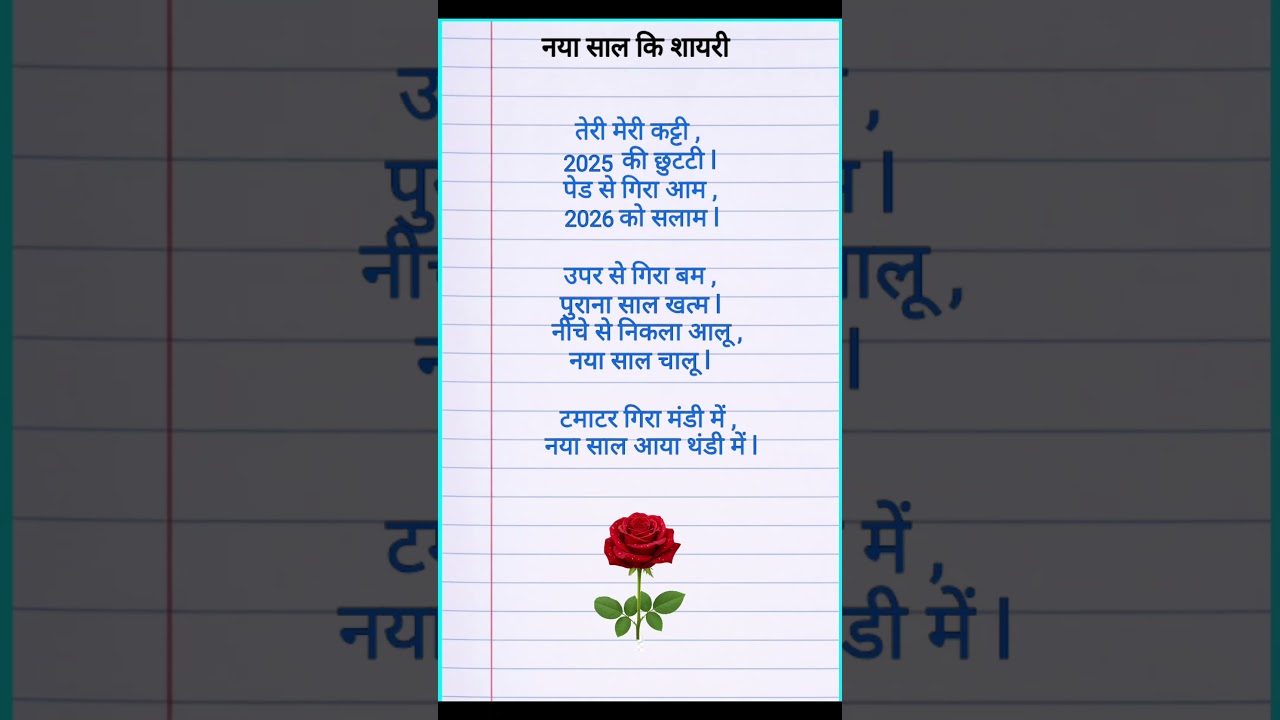 नया साल कि शायरी
तेरी मेरी कट्टी ,
2025 की छुटटी l
पेड से गिरा आम ,
2026 को सलाम l
उपर से गिरा बम ,
पुराना साल खत्म l
नीचे से निकला आलू ,
नया साल चालू l
टमाटर गिरा मंडी में ,
नया साल आया थंडी में l